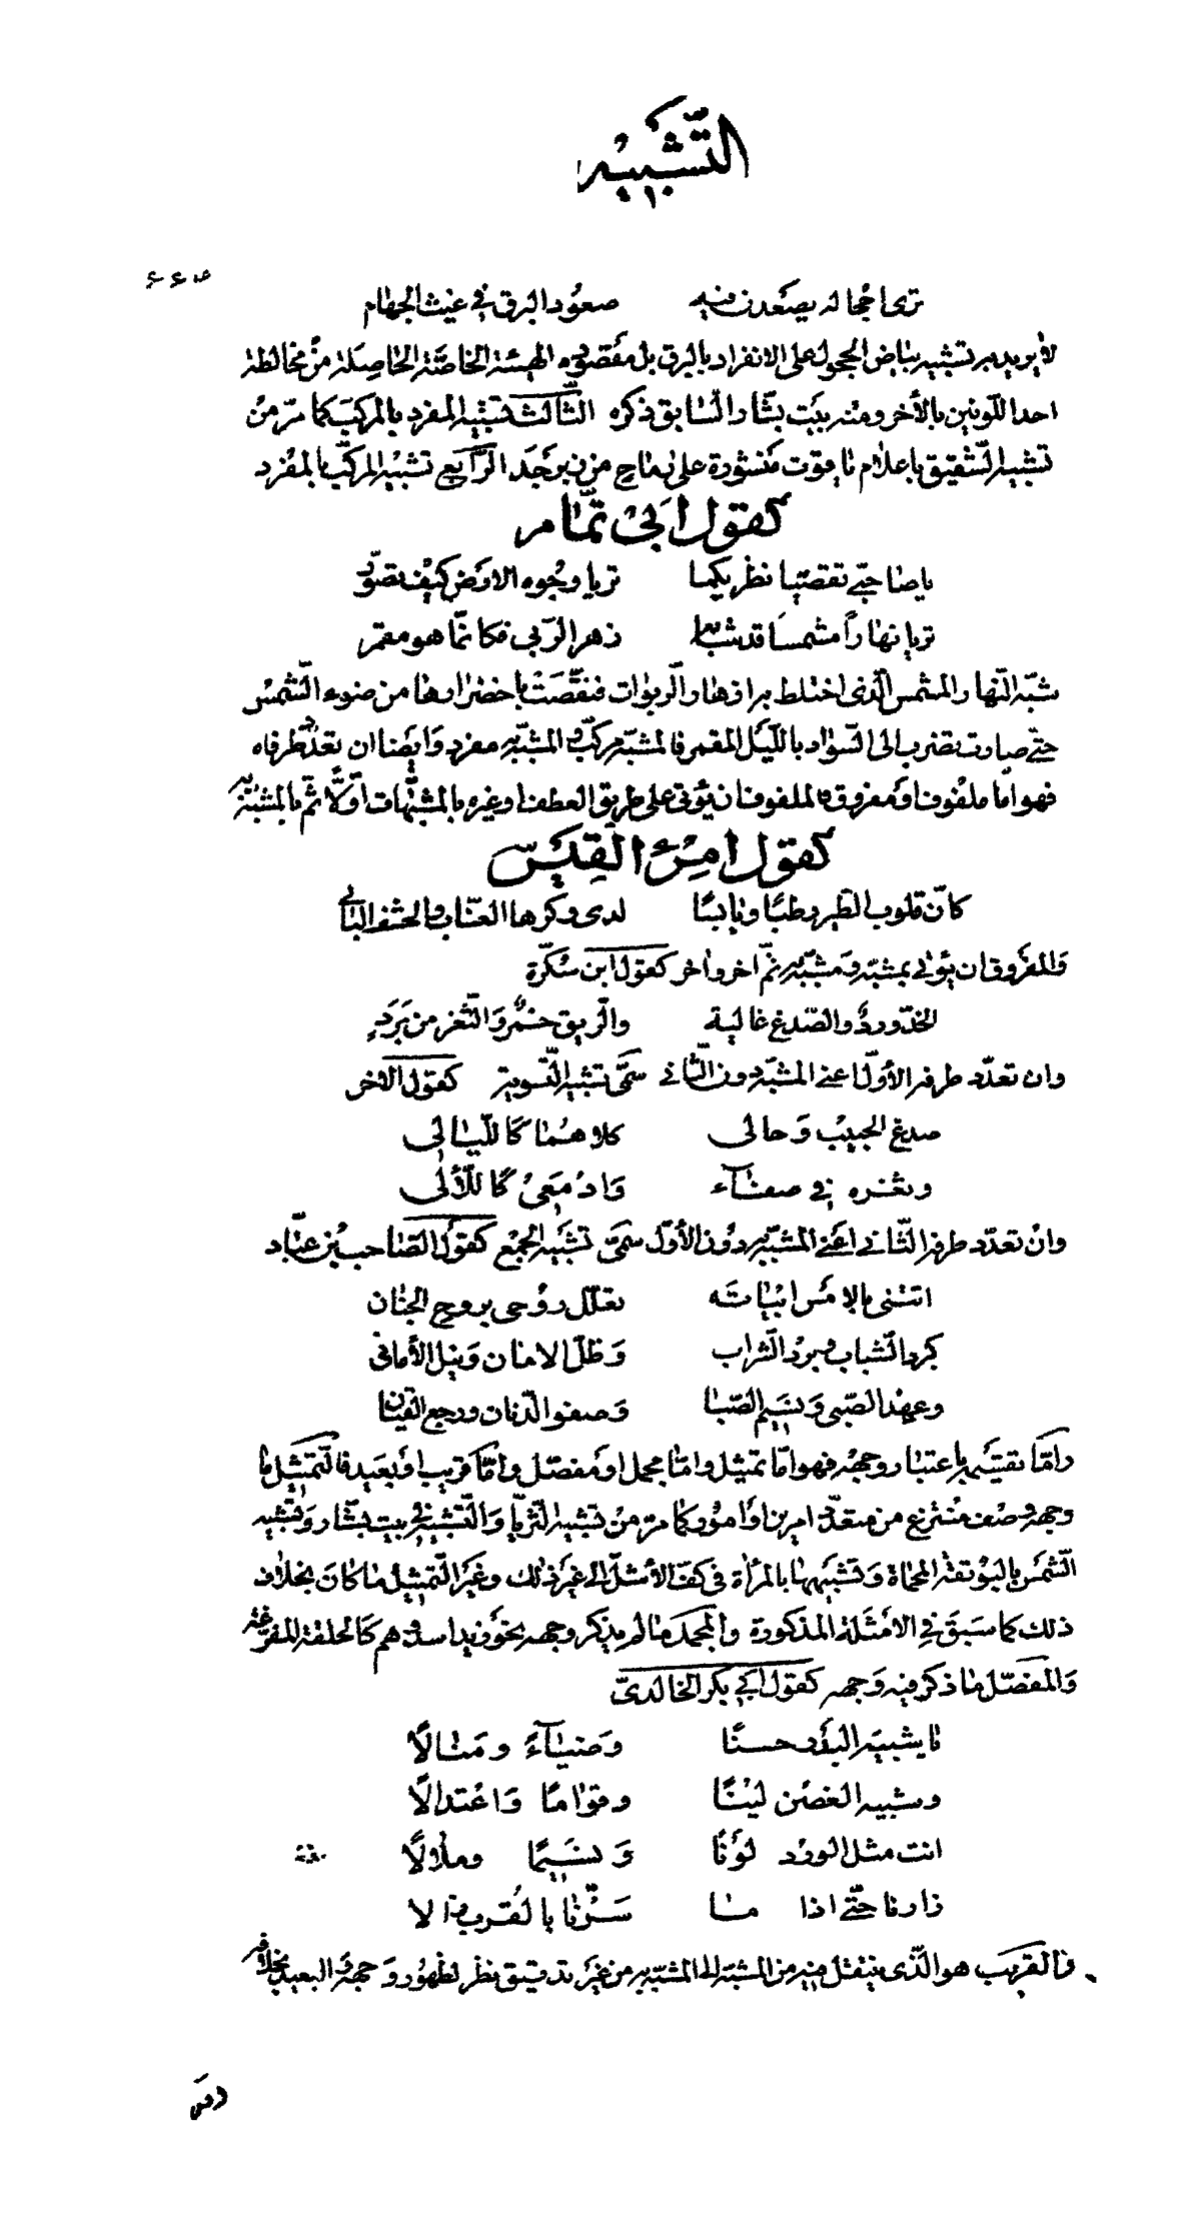 التَّشبيه
٦٦٥
ترى احجاله يصعدن فيه صعُود البرق في غيث الجهام
لا يريد به تشبيه بياض الحجول على الانفراد بالبرق بل مقصوده الهيئة الخاصّة الحاصلة من مخالطة
احد اللّونين بالأخر ومنه بيت بشّار السّابق ذكره الثّالث تشبيه المفرد بالمركب كما مرّ من
تشبيه الشّقيق باعلام ياقوت منشورة على رماح من زبرجد الرّابع تشبيه المركّب بالمفرد
كقول ابي تمّام
يا صاحبيّ تقصّيا نظريكما تريا وجُوه الارض كيف تصوّر
تريا نهاراً مشمسا قد شابه زهر الرّبى فكانّما هو مقمر
شبّه النّهار المشمس الّذي اختلط به ازهار الرّبوات فنقّصت باخضرارها من ضوء الشّمس
حتّى صارت تضرب الى السّواد باللّيل المقمر فالمشبّه مركّب والمشبّه به مفرد وايضا ان تعدّد طرفاه
فهو امّا ملفُوف او مفروق فالملفوف ان يؤتى على طريق العطف او غيره بالمشبّهات اوّلاً ثمّ بالمشبّه به
كقول امرئ القيس
كانّ قلوب الطّير رطبًا ويابسًا لدى وكرها العنّاب والحشف البالي
والمفروق ان يؤتى بمشبّه ومشبّه به ثمّ اخر واخر كقول ابن سُكّرة
الخدّ وردٌ والصّدغ غالية والرّيق خمرٌ والثّغر من بَرَدِ
وان تعدّد طرفه الأوّل اعني المشبّه دون الثّاني سمّي تشبيه التّسوية كقول الاخر
صدغ الحبيب وحالى كلاهُما كاللّيالى
وثغره في صفاء وادمعي كاللّألى
وان تعدّد طرفه الثّاني اعني المشبّه به دون الأوّل سمّي تشبيه الجمع كقول الصّاحب بن عبّاد
اتتنى بالامس ابياته تعلّل روُحى بروح الجنان
كبرد الشّباب وبرد الشّراب وظلّ الامان ونيل الأماني
وعهد الصّبى ونسيم الصّبا وصفو الدّنان ورجع القيان
وامّا تقسيمه باعتبار وجهه فهو امّا تمثيل وامّا مجمل او مفصّل وامّا قريب او بعيد فالتّمثيل ما
وجهه وصف منتزع من متعدّد امرين او امور كما مرّ من تشبيه الثّريّا والتّشبيه في بيت بشّار وتشبيه
الشّمس بالبوتقة المحماة وتشبيهها بالمرأة في كفّ الأشلّ الى غير ذلك وغير التّمثيل ما كان بخلاف
ذلك كما سبق في الامثلة المذكورة والمجمل ما لم يذكر وجهه نحو زيد اسد وهم كالحلقة المفرغة
والمفصّل ما ذكر فيه وجهه كقول ابي بكر الخالديّ
يا شبيه البدر حسنًا وضياءً ومنالاً
وشبيه الغصن لينًا وقوامًا واعتدالاً
انت مثل الورد لونًا ونسيمًا وملالاً
زارنا حتّى اذا ما سرّنا بالقرب زالا
فالقريب هو الّذي ينتقل فيه من المشبّه الى المشبّه به من غير تدقيق نظر لظهُور وجهه والبعيد بخلافه